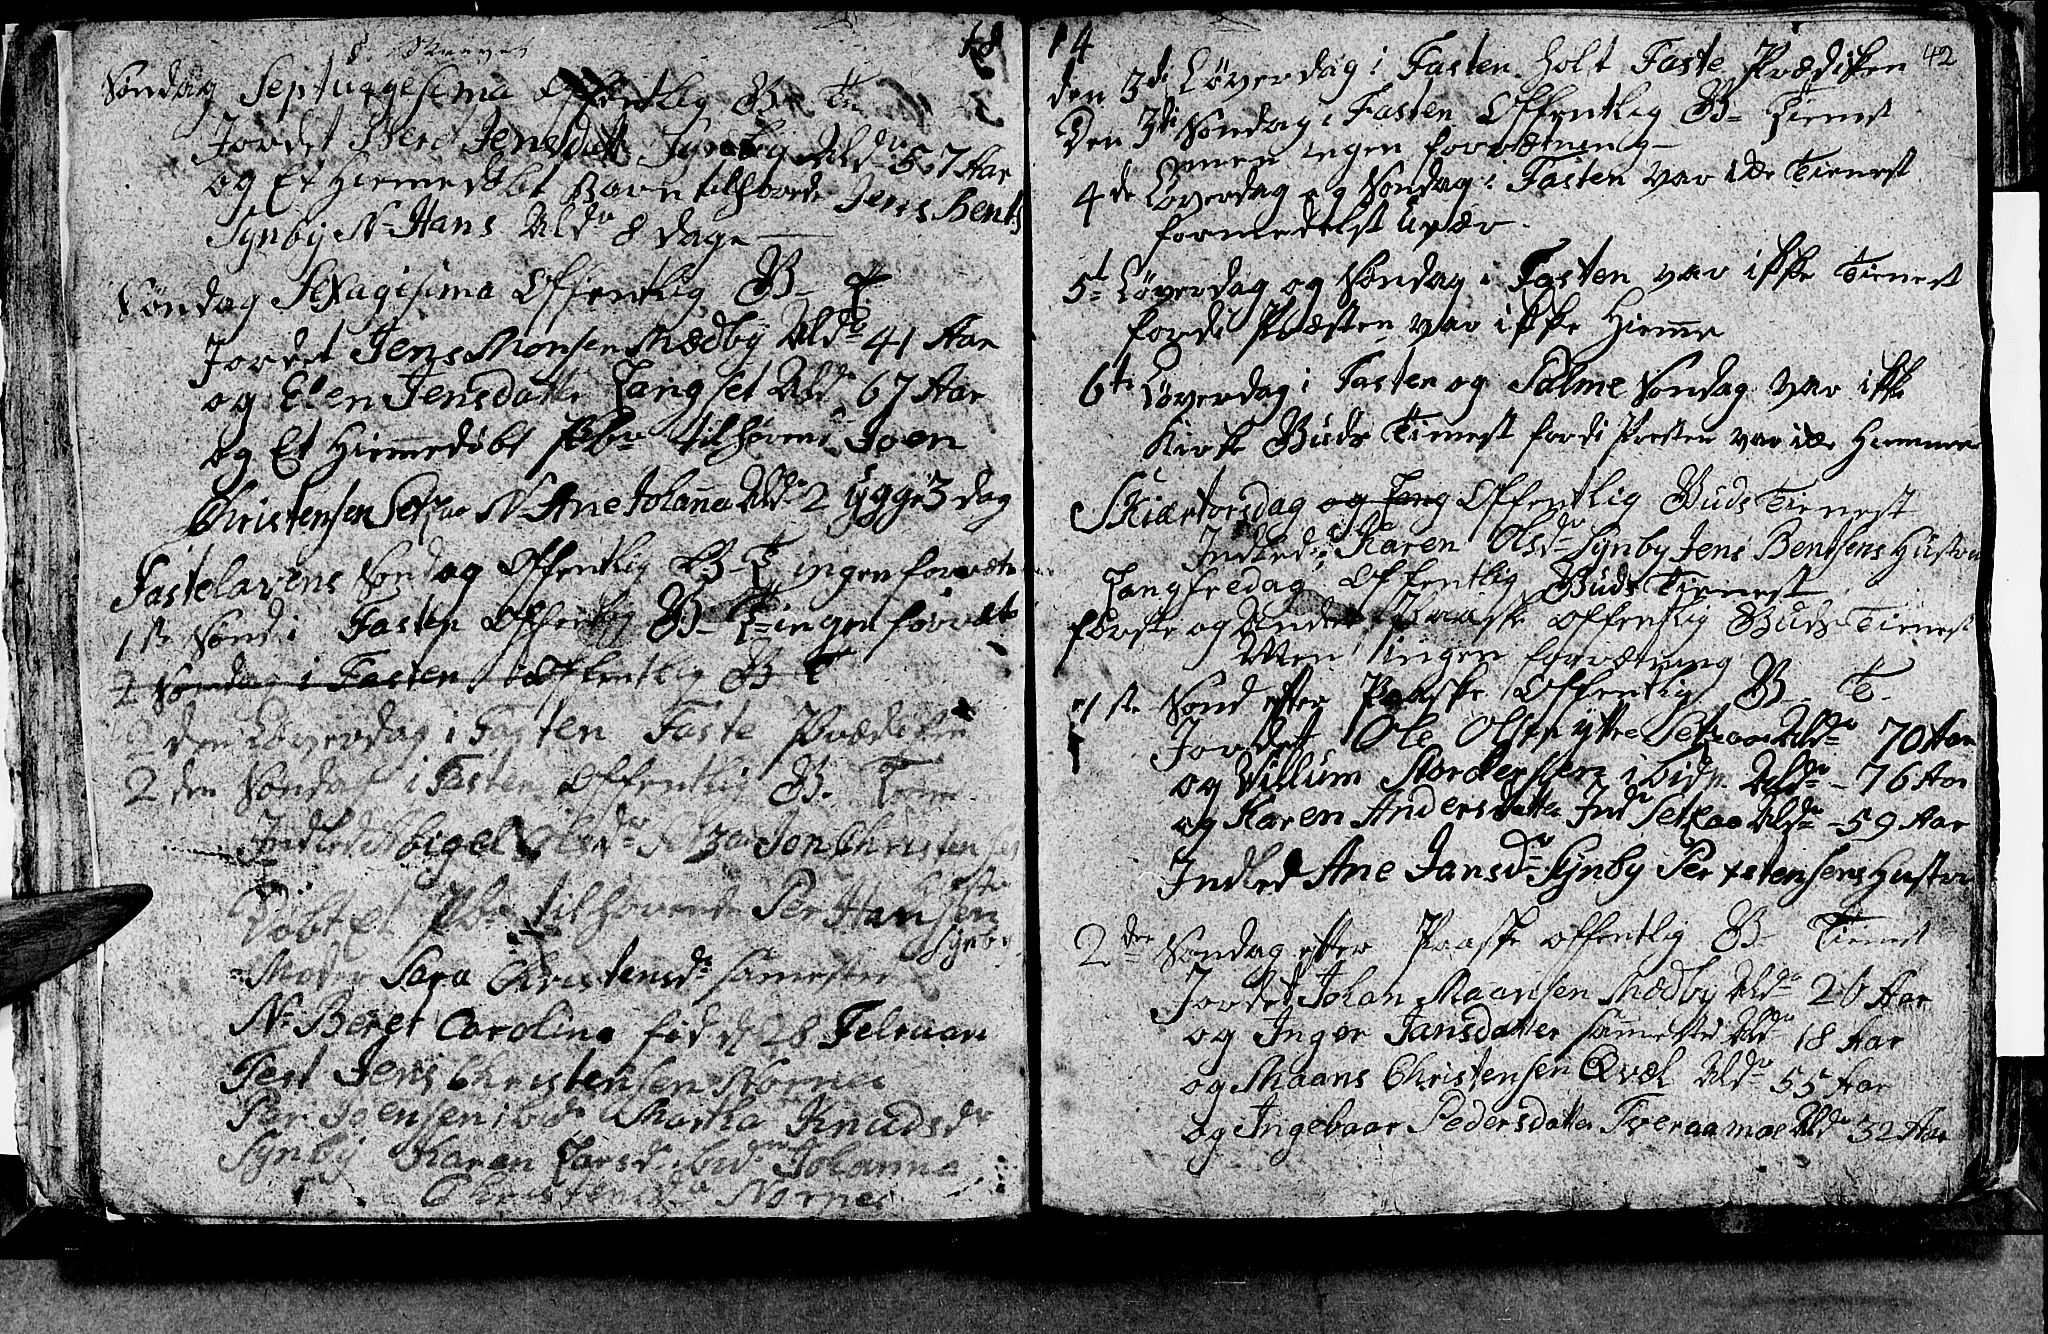 18
Søndag Septuggesima offentlig B- Tn
Jordet Beret Jensdatt Synbÿ Aldr 57 Aar
og Et Hiemedøbt Barn tilhørde Jens Bents
Synbÿ N- Hans Aldr 8 dage
Søndag Sexagisima offentlig B- T
Jordet Jens Monsen Mædbÿ Aldr 41 Aar
og Elen Jensdatter Langset Aldr 67 Aar
og Et Hiemmedøbt tilhørend Joen
Christensen Setraa N- Ane Johanna Aldr 2 ÿgge 3 dag
Fastelavens Søndag Offentlig B- T ingen forretn
1ste Sønd i Fasten Offentlig B- T- ingen forret
2 Søndag i Fasten offentlig B T
2den Løverdag i Fasten Faste Prædiken
2den Søndag i Fasten offentlig B. Tien
Indled Abigel Olsdr Setraa Jon Christenses
Hustr
Døbt Et tilhørende Per Hansen
Synby
Moder Sara Christensdr samesten
N- Beret Carolina fød d 28 Februari
Test Jens Christensen Norne
Per Joensen ibd Martha Knudsdr
Synbÿ Karen Larsdr ibid Johanna
Christensdr Norne
14
42
den 3di Løverdag i Fasten holt Faste Prædiken
Den 3di Søndag i Fasten Offentlig B- Tienest
men ingen forretning
4de Løverdag og Søndag i Fasten var icke Tienest
formedelst Uveer
5t- Løverdag og Søndag i Fasten var ikke Tienest
fordi Præsten var ikke Hieme
6te Løverdag i Fasten og Palme Søndag var ikke
Kirke Buds Tienest fordi Presten var icke Hiemme
Skiærtorsdag og Lang Offentlig Buds Tienest
Indled Karen Olsdr Synby Jens Bentsens Hustru
Langfredag Offentlig Buds Tienest
første og Anden Paaske offentlig Buds Tienest
Men ingen forretning
1ste Sønd efter Paaske Offentlig B- T-
Jordet Ole Olsen ÿtre Setraa Aldr 70 Aar
og Villum ibid Aldr - 76 Aar
og Karen Andersdatter Indr Setraa Aldr - 59 Aar
Indled Ane Jansdr Synby Per xstensens Hustru
2den Søndag efter Paaske offentlig B- Tienest
Jordet Johan Maansen Mædbÿ Aldr 26 Aar
og Inger Jansdatter sammested Aldr 18 Aar
og Maans Christensen Qvæl Aldr 55 Aar
og Ingebaar Pedersdatter Tveraamoe Aldr 32 Aar